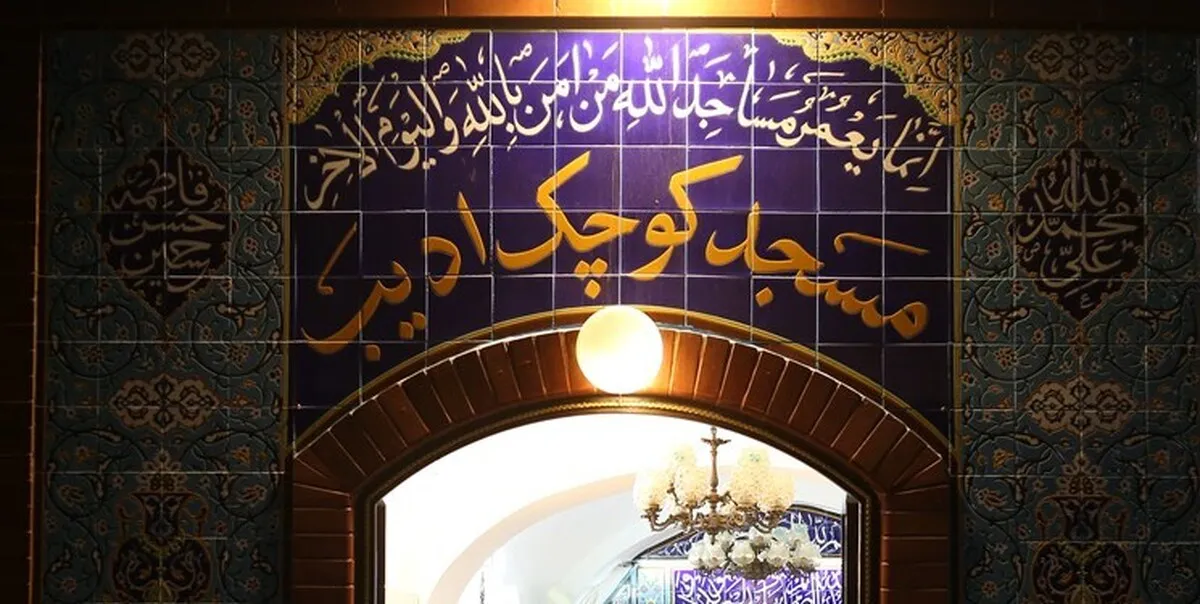 إنما يعمر مساجد الله من امن بالله واليوم الاخر
مسجد کوچک ادیب
الله
محمد
علی
فاطمه
حسن
حسین